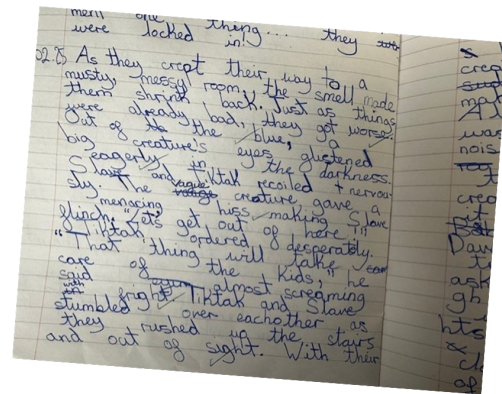 ment one thing... they
were locked in!
02.25 As they crept their way to a
musty, messy room, the smell made
them shrink back. Just as things
were already bad, they got worse.
Out of the blue, a
big creature's eyes glistened
eagerly in the darkness.
Slave and Tiktak recoiled nervou-
sly. The vague creature, gave a
menacing hiss making Slave
flinch. "Let's get out of here!!"
Tiktak ordered desperately.
"That thing will take
care of the kids," he
said almost screaming
with fright. Tiktak and Slave
stumbled over eachother as
they rushed up the stairs
and out of sight. With their
crep
mat
A
was
nois
crea
it
Daw
t
ask
gh
hts
&
cl
of